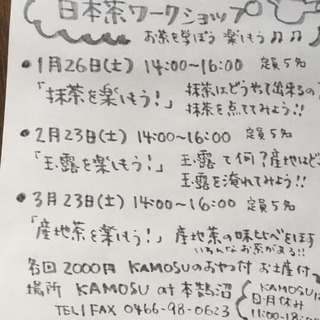 日本茶ワークショップ
お茶を学ぼう 楽しもう♫♫
●1月26日(土) 14:00~16:00 定員5名
「抹茶を楽しもう!」 抹茶はどうやって出来るの
抹茶を点ててみよう!!
●2月23日(土) 14:00~16:00 定員5名
「玉露を楽しもう!」 玉露て何?産地はど
玉露を淹れてみよう!!
●3月23日(土) 14:00~16:00 定員5名
「産地茶を楽しもう!」 産地茶の味比べをほす
いろんなお茶がある!!
各回2000円 KAMOSUのおやつ付 お土産付
場所 KAMOSU at 本鵠沼
TEL|FAX 0466-98-0623
KAMOSUは
日月休み
11:00-18:00